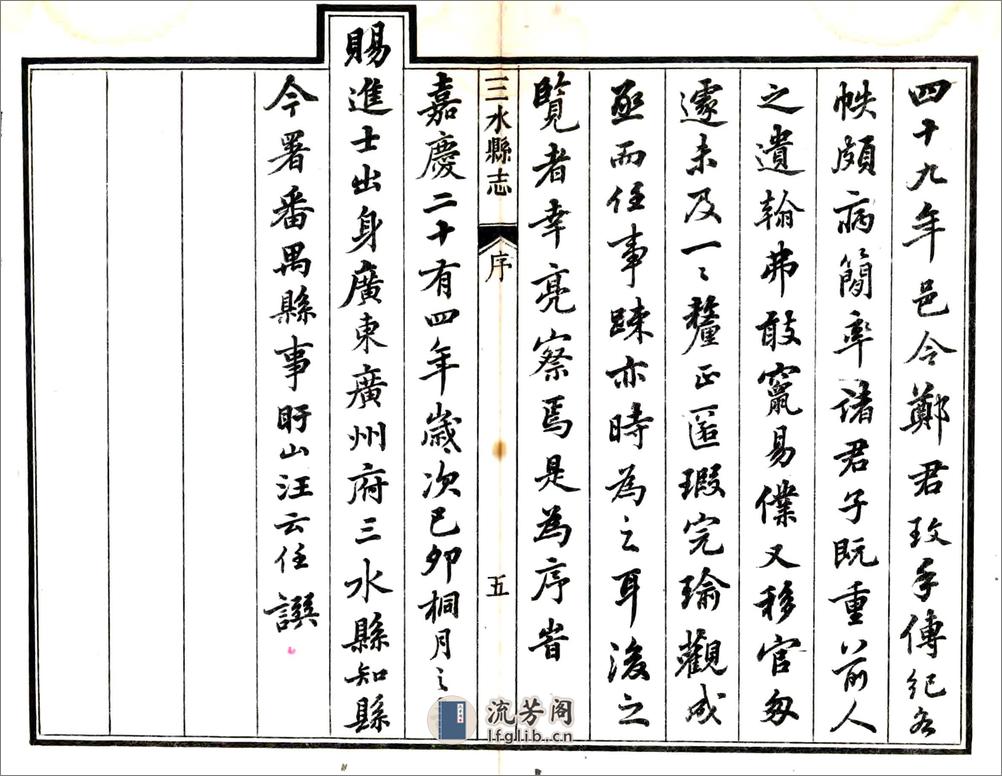 四十九年邑令鄭君玫手傳紀各
帙頗病簡率諸君子既重前人
之遺翰弗敢竄易僕又移官匆
遽未及一〻釐正匿瑕完瑜觀成
亟而任事踈亦時為之耳後之
覽者幸亮察焉是為序旹
三水縣志 序 五
嘉慶二十有四年歲次己卯桐月之
賜進士出身廣東廣州府三水縣知縣
今署番禺縣事盱山汪云任譔
流芳阁
lfglib.cn